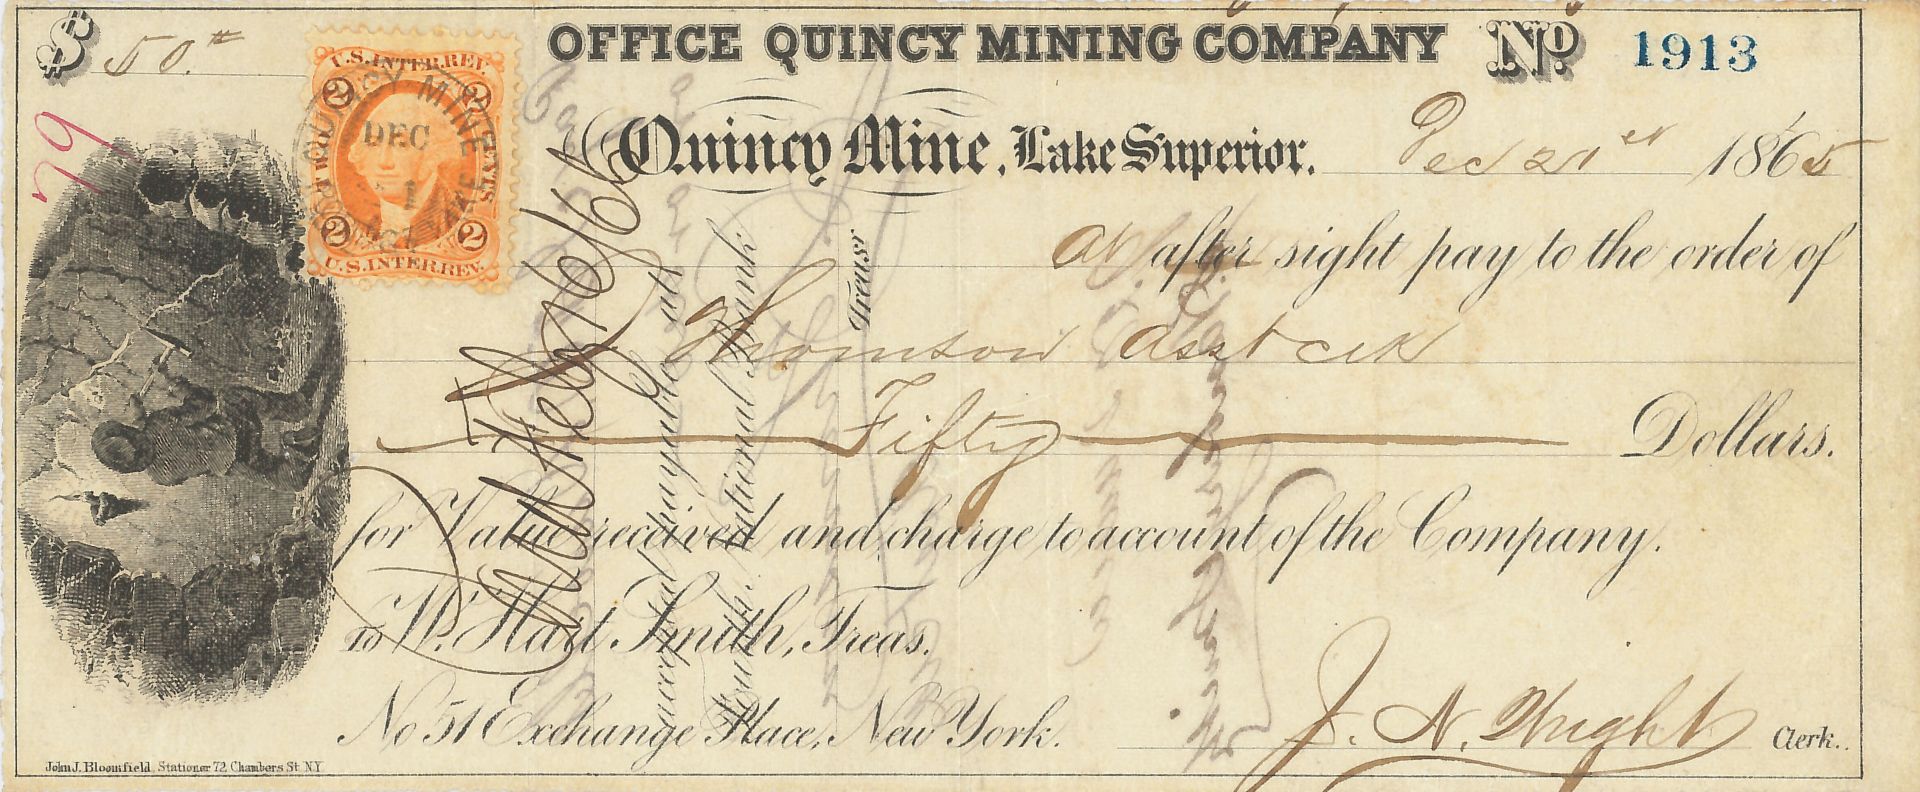 $ 50.00
OFFICE QUINCY MINING COMPANY No. 1913
79
U.S. INTER. REV.
2 2
QUINCY MINE
DEC
1
TWO CENTS
2 2
U.S. INTER. REV.
Quincy Mine, Lake Superior. Dec 21st 1865
at after sight pay to the order of
Thomson Asst Clk
Fifty Dollars.
for Value received and charge to account of the Company.
To W. Hart Smith, Treas.
No 51 Exchange Place, New York.
J. N. Wright Clerk.
John J. Bloomfield, Stationer 72 Chambers St. N.Y.
accepted payable at
National Bank
Treasr